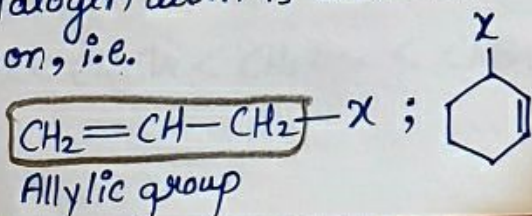 on, i.e.
X
CH₂=CH-CH₂-X ;
Allylic group